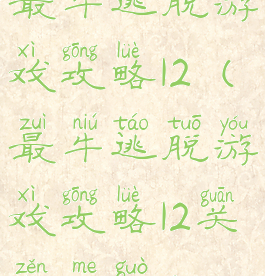 最牛逃脱游
xì gōng lüè
戏攻略12（
zuì niú táo tuō yóu
最牛逃脱游
xì gōng lüè guān
戏攻略12关
zěn me guò